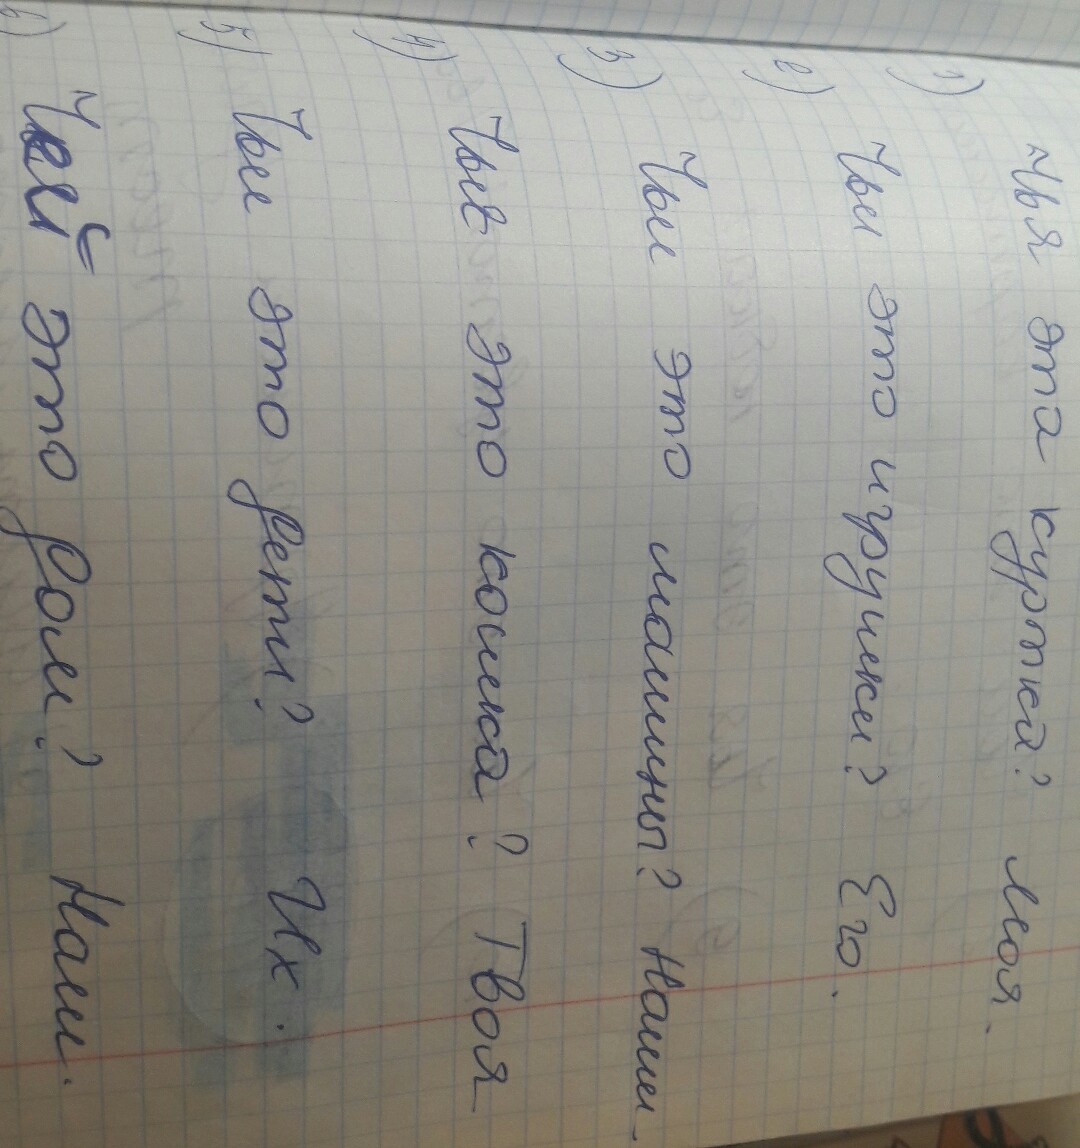 1) Чья эта куртка? Моя.
2) Чьи это игрушки? Его.
3) Чьи это машины? Наши.
4) Чье это кошка? Твоя
5) Чьи это дети? Их.
6) Чей это дом? Наш.